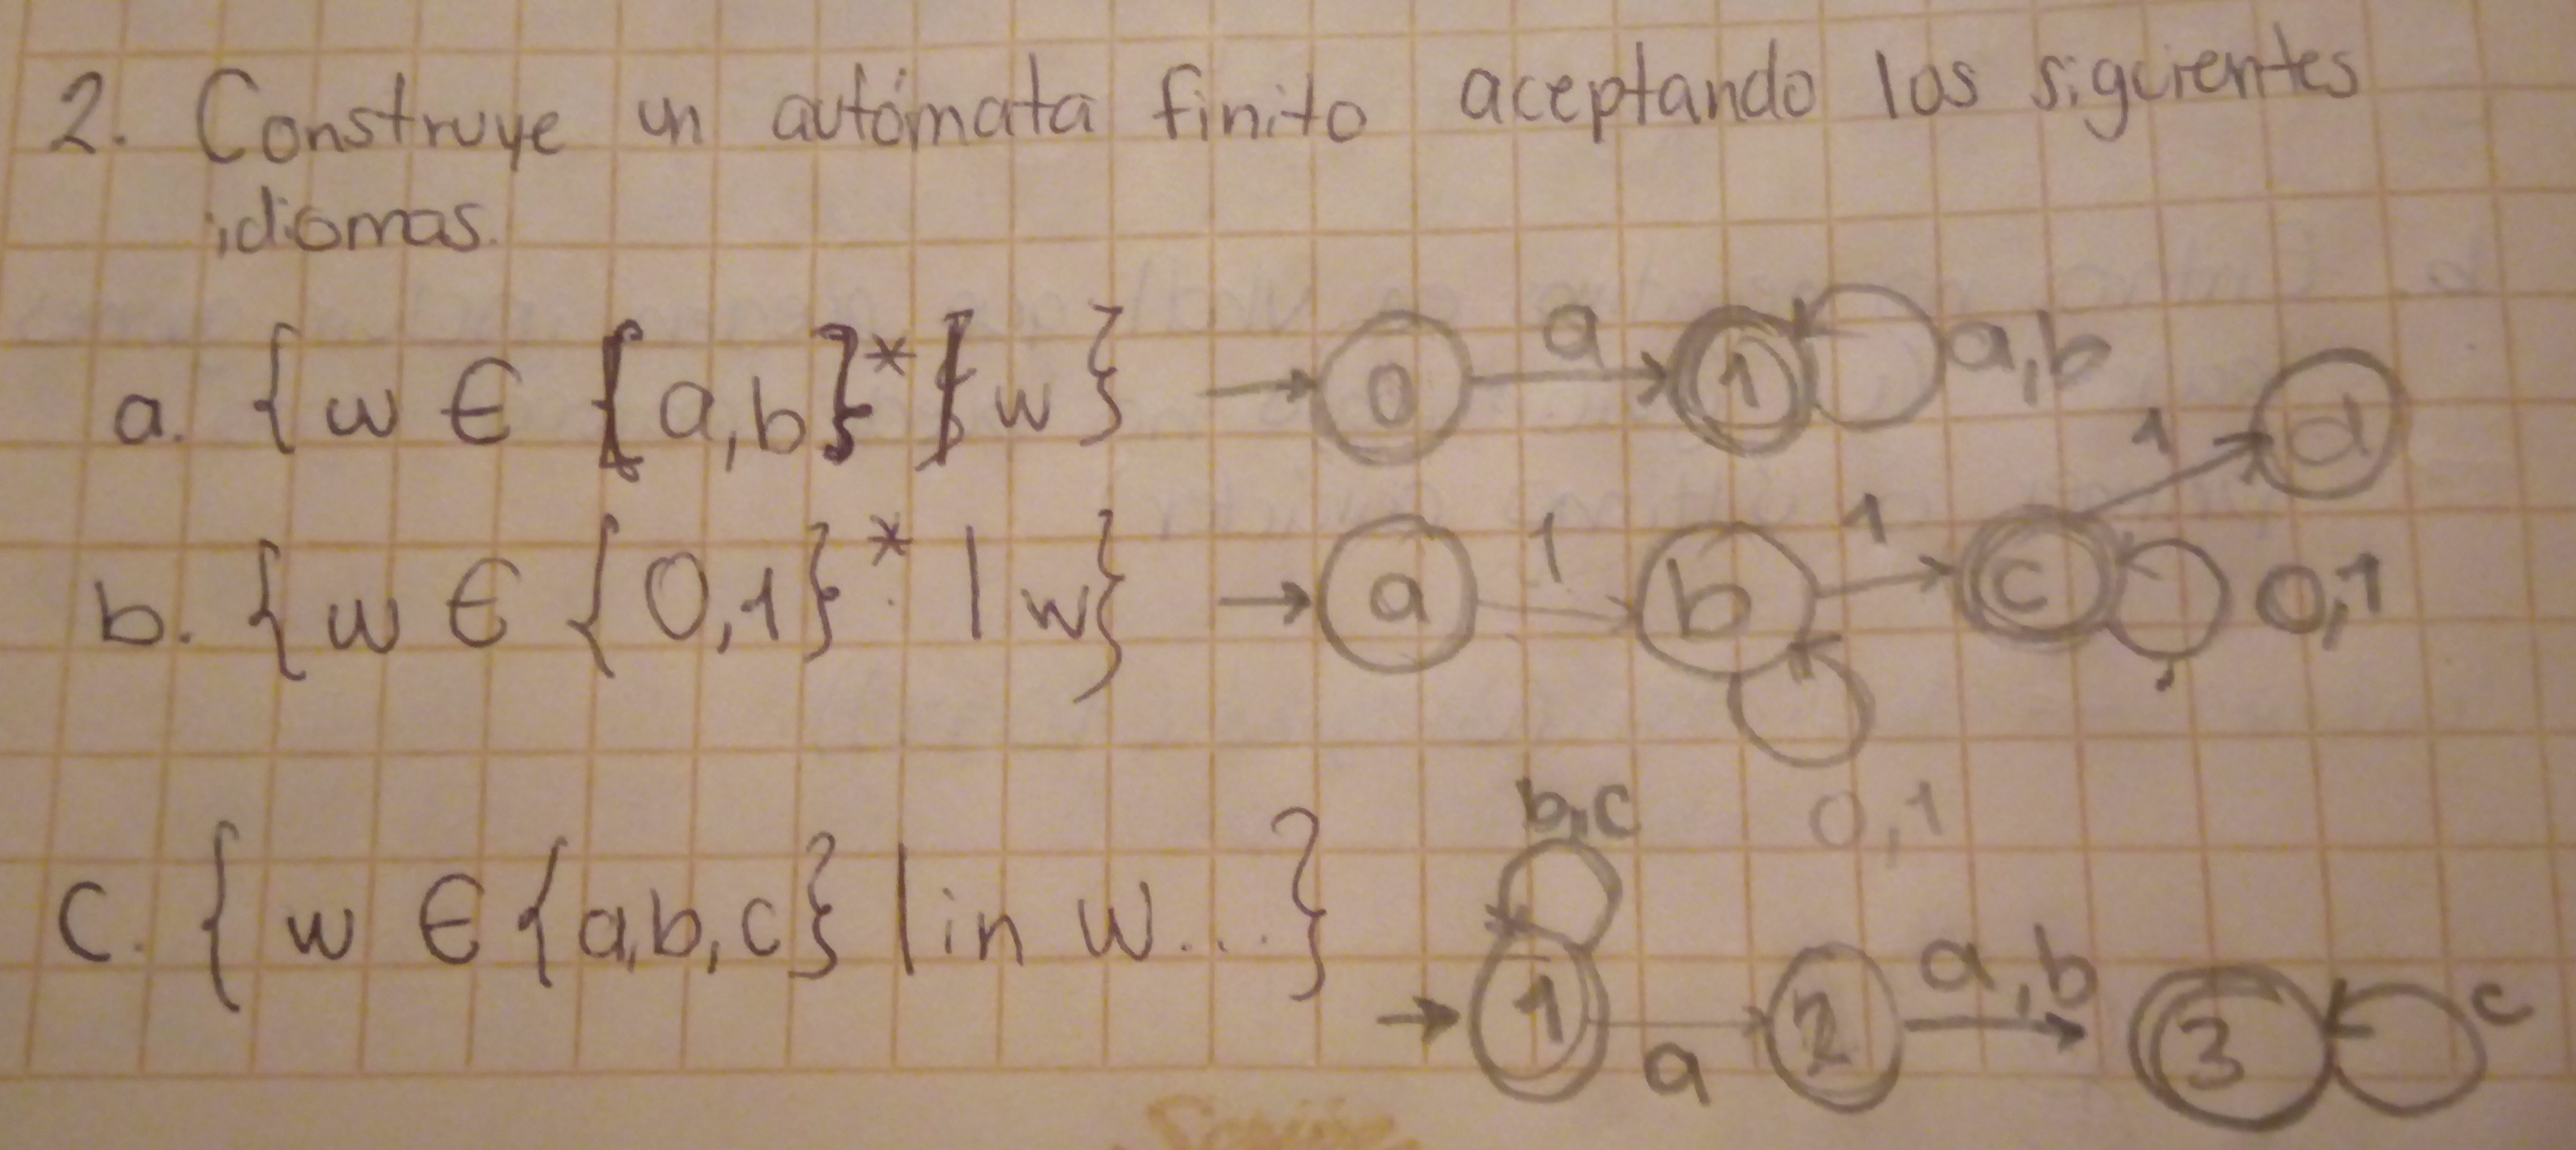 2. Construye un autómata finito aceptando los siguientes
idiomas.
a. {w ∈ {a,b}* | w} 0 a 1 a,b
b. {w ∈ {0,1}* | w} a 1 b 1 c 1 d 0,1
0,1
c. {w ∈ {a,b,c} | in w...} b,c
1 a 2 a,b 3 c